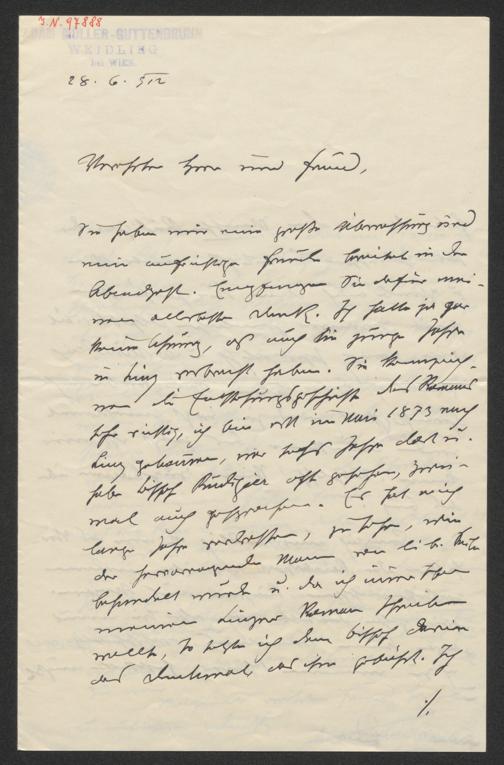 J.N. 97888
ADAM MÜLLER-GUTTENBRUNN
WEIDLING
bei WIEN.
28. 6.
Verehrter Herr und Freund,
Sie haben mir eine große Überraschung und
eine aufrichtige Freude bereitet in der
Abendpost. Empfangen Sie dafür mei-
nen allerbesten Dank. Ich hatte ja gar
keine Ahnung, daß auch Sie junge Jahre
in Linz verbracht haben. Sie kennzeich-
nen die Entstehungsgeschichte des Romans
sehr richtig, ich bin erst im Mai 1873 nach
Linz gekommen, war sechs Jahre dort u.
habe Bischof Rudigier oft gesehen, zwei-
mal auch gesprochen. Es hat mich
lange Jahre verdrossen, zu sehen, wie
der hervorragende Mann von lib. Seite
behandelt wurde u. da ich immer schon
meinen Linzer Roman schreiben
wollte, so setzte ich dem Bischof darin
das Denkmal, das ihm gebührt. Ich
./.